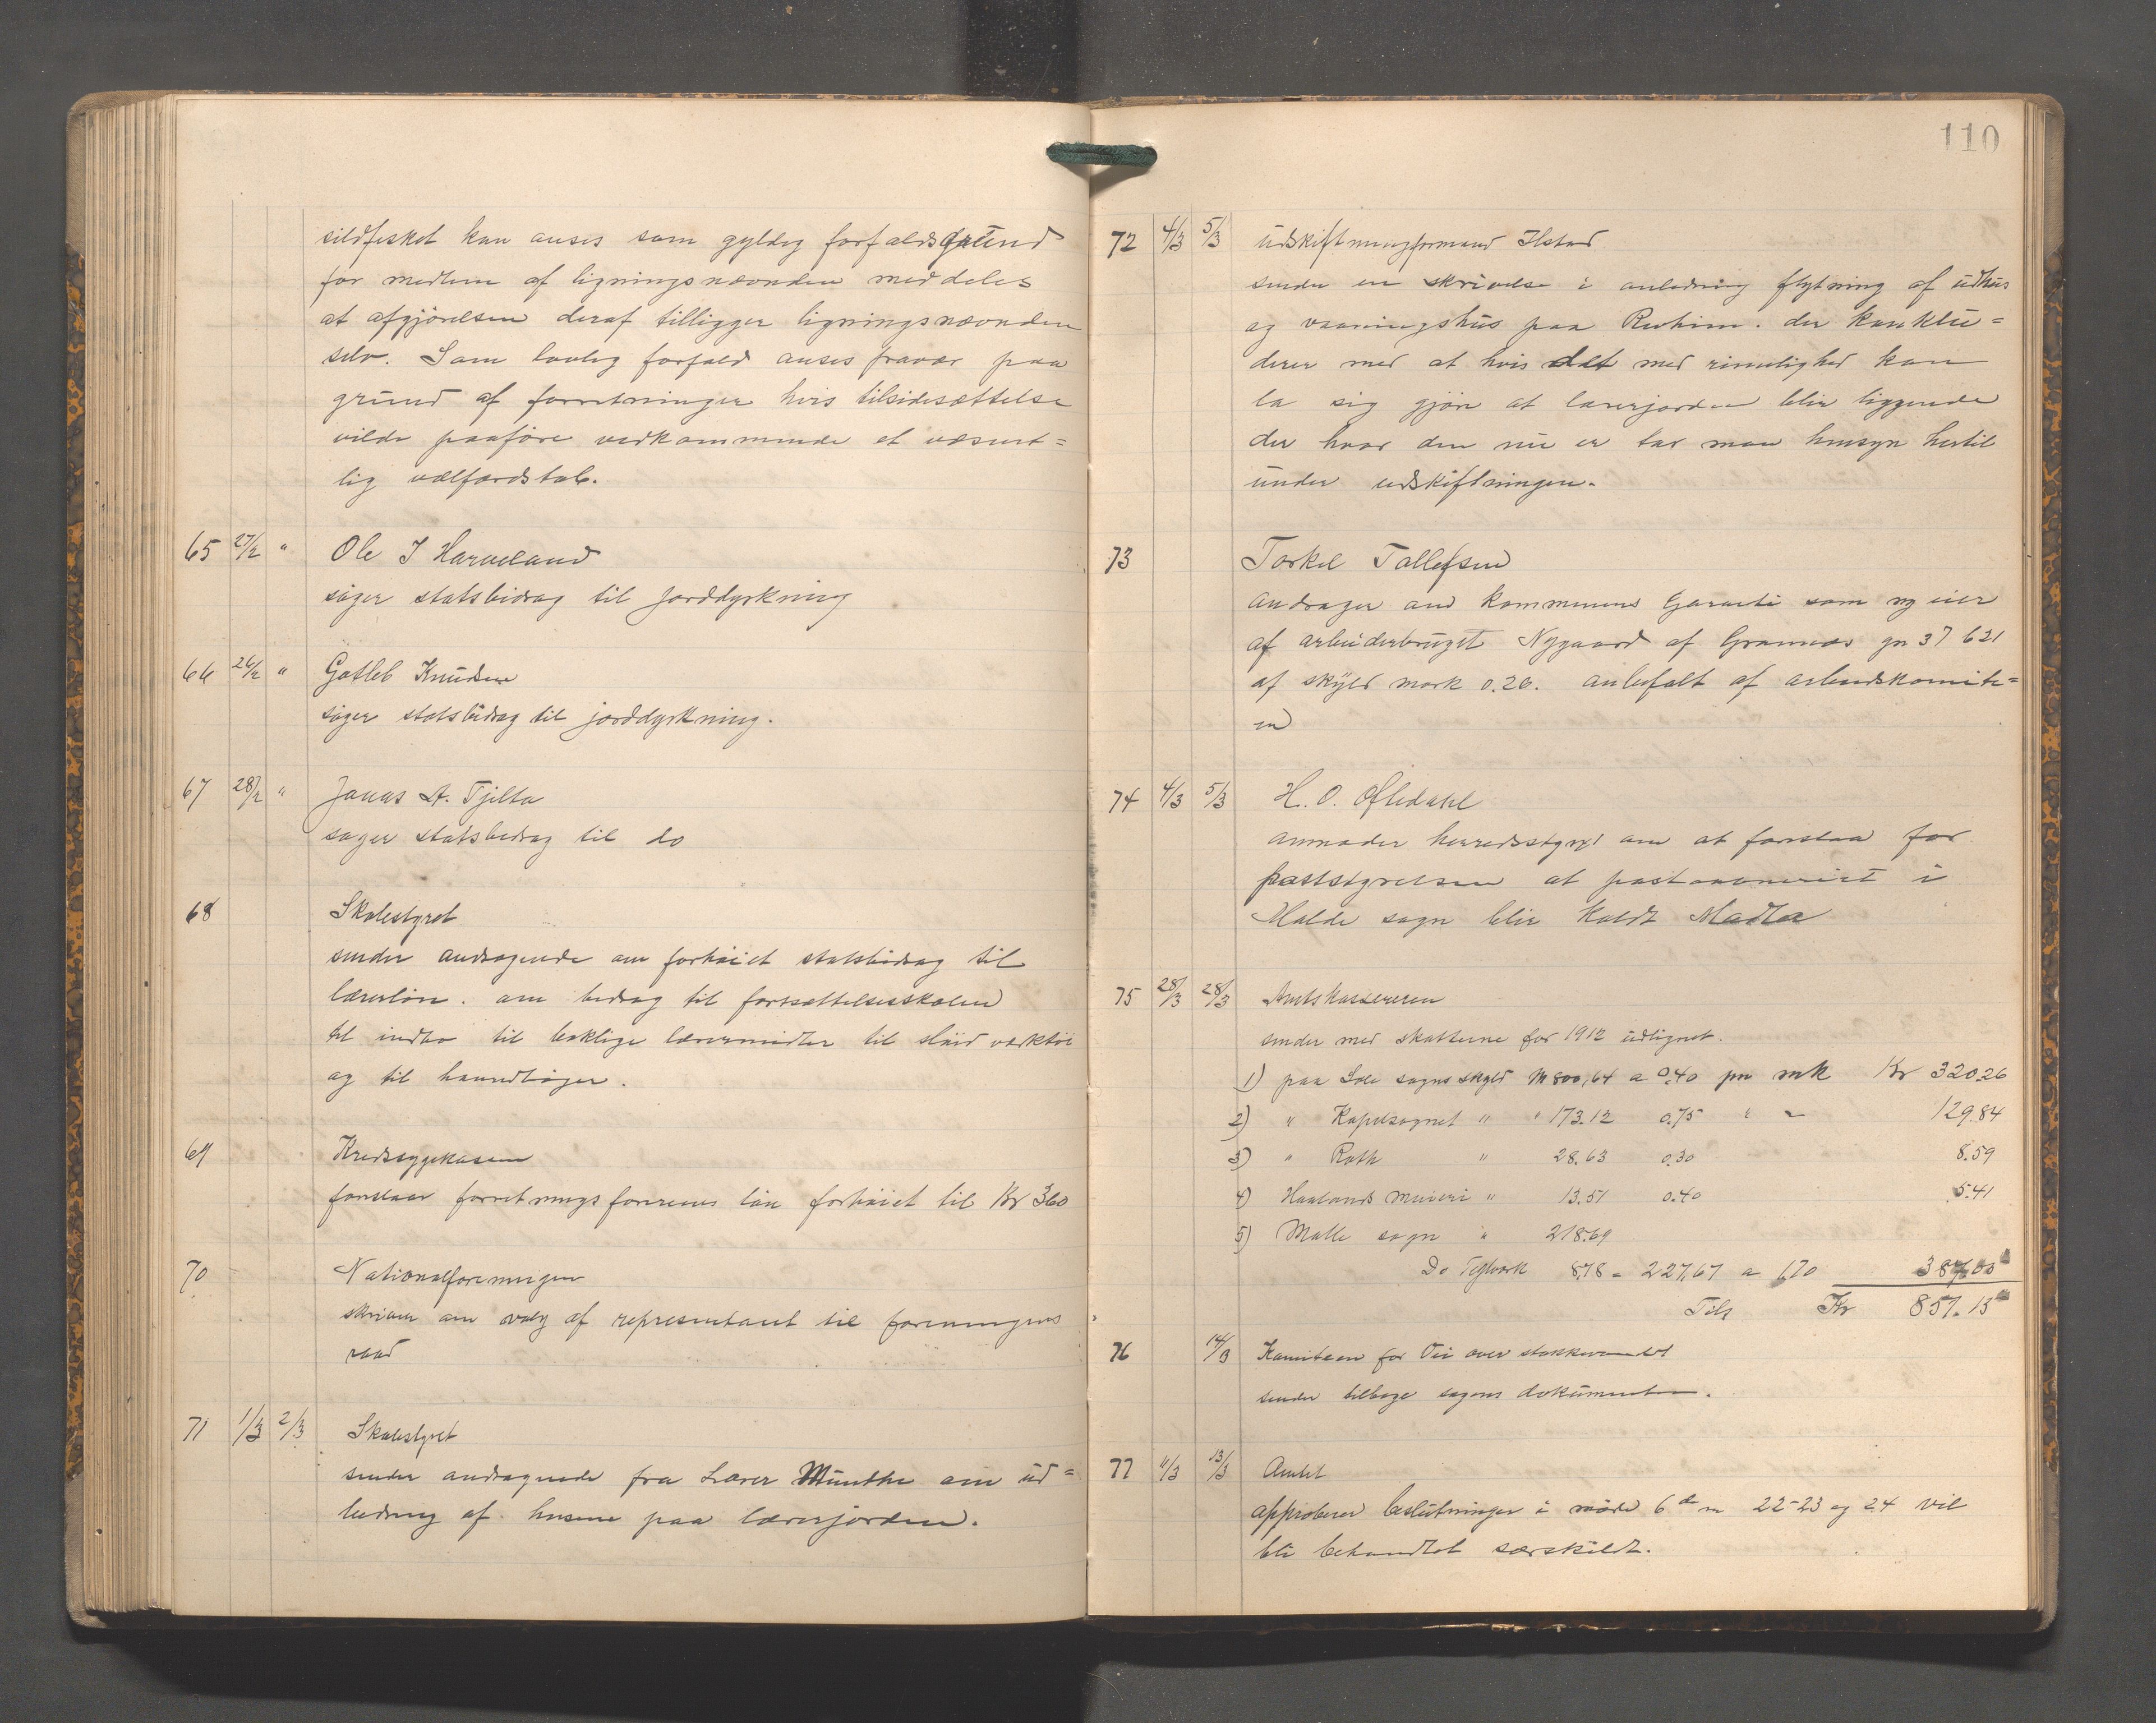 sildfisket kan anses som gyldig forfaldsgrund
for medlem af ligningsnævnden meddeles
at afgjörelsen deraf tilligger ligningsnævnden
selv. Som lovlig forfald anses fravær paa
grund af forretninger hvis tilsidesættelse
vilde paaföre vedkommende et væsent=
lig velfærdstab.
65 27/2 " Ole J Harveland
söger statsbidrag til jorddyrkning
66 26/2 " Gotleb Knudsen
söger statsbidrag til jorddyrkning.
67 28/2 " Jonas A. Tjelta
söger statsbidrag til do
68 Skolestyret
sender andragende om forhöiet statsbidrag til
lærerlön. om bidrag til fortsættelsesskolen
til til sløid værktöi
og til haandböger.
69 Kredssygekassen
foreslaar forretningsförerens lön forhöiet til Kr 360
70 Nationalforeningen
skriver om valg af representant til foreningens
raad
71 1/3 2/3 Skolestyret
sender andragende fra Lærer Münthe om ud=
bedring af husene paa lærerjorden.
110
72 4/3 5/3 Udskiftningsformand Ilstad
sender en skrivelse i anledning flytning af udhus
og vaaningshus paa . der konklu=
derer med at hvis det med rimelighed kan
la sig gjöre at lærerjorden blir liggende
der hvor den nu er tar man hensyn hertil
under udskiftningen.
73 Torkel Tollefsen
andrager om kommunens Garanti som ny eier
af arbeiderbruget Nygaard af Grannes gn 37 b 21
af skyld mark 0.26. anbefalt af arbeidskomite=
en
74 4/3 5/3 H. O. Oftedahl
anmoder herredsstyret om at foreslaa for
poststyrelsen at postaabneriet i
Malde sogn blir kaldt Madla
75 28/3 28/3 Amtskassereren
sender med skatterne for 1912 udlignet.
1) paa Sole sogns skyld M 800,64 a 0.40 pr mk Kr 320.26
2) " Kapelsognet " " 173.12 0.75 " 129.84
3) " Roth " 28.63 0.30 8.59
4) Haalands meieri " 13.51 0.40 5.41
5) Malle sogn " 218.69
Do Teglverk 8.98 = 227,67 a 1,70 387.05
Tils Kr 851.15
76 14/3 Komiteen for Vei over stokkevandet
sender tilbage sagens dokumenter.
77 11/3 13/3 Amtet
approberer beslutninger i möde 6te m 22-23 og 24 vil
bli behandlet særskildt.